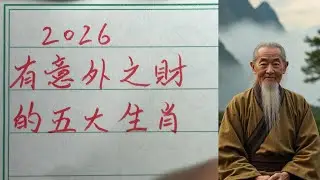 2026
有意外之財
的五大生肖